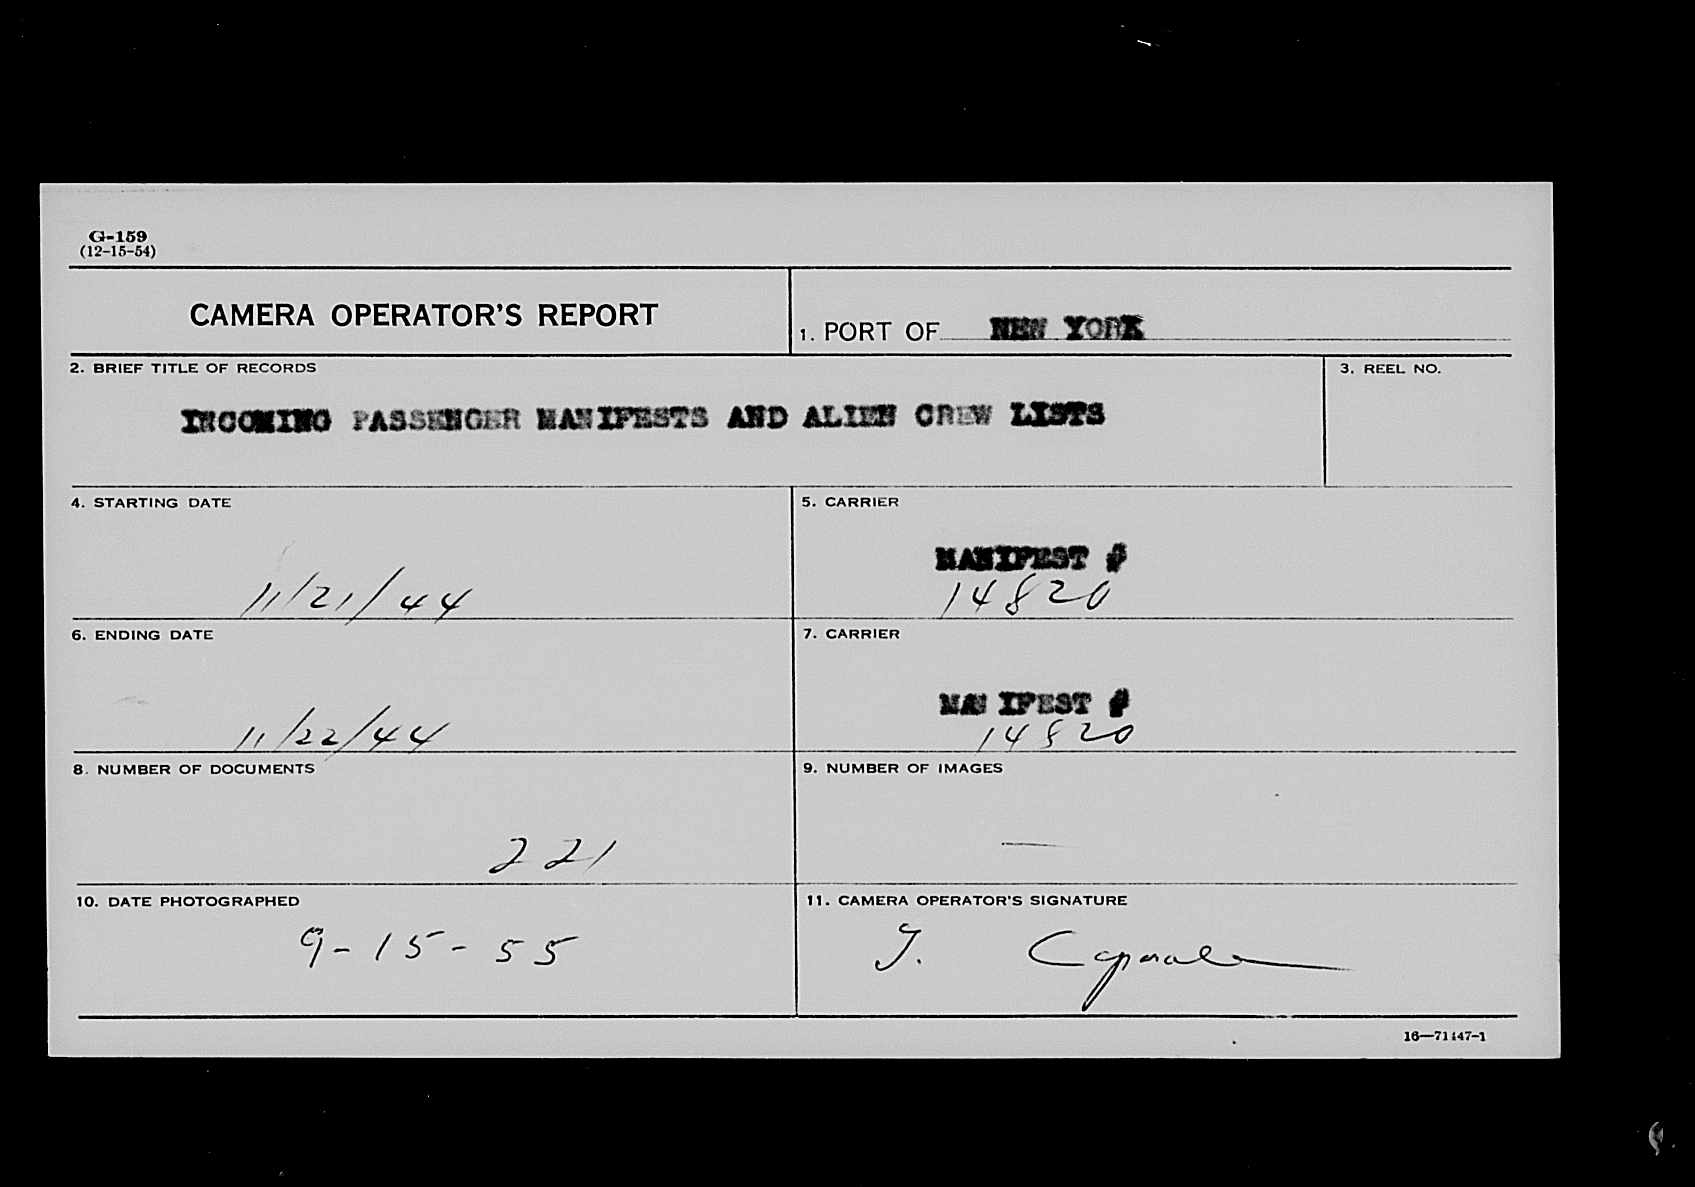 G-159
(12-15-54)
CAMERA OPERATOR'S REPORT
1. PORT OF NEW YORK
2. BRIEF TITLE OF RECORDS
3. REEL NO.
INCOMING PASSENGER MANIFESTS AND ALIEN CREW LISTS
4. STARTING DATE
5. CARRIER
MANIFEST #
11/21/44
14820
6. ENDING DATE
7. CARRIER
MANIFEST #
11/22/44
14820
8. NUMBER OF DOCUMENTS
9. NUMBER OF IMAGES
221
—
10. DATE PHOTOGRAPHED
11. CAMERA OPERATOR'S SIGNATURE
9-15-55
16—71447-1